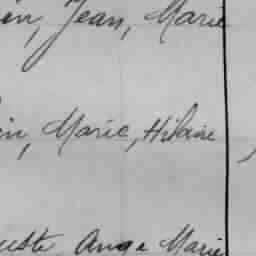 en, Jean, Marie
in, Marie, Hilaire,
uste Ange Marie